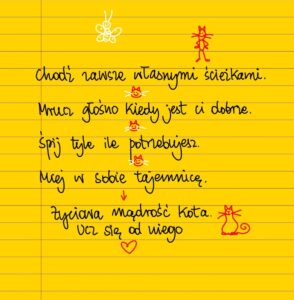 Chodź zawsze własnymi ścieżkami.
Mrucz głośno kiedy jest ci dobrze.
Śpij tyle ile potrzebujesz.
Miej w sobie tajemnicę.
Życiowa mądrość kota.
Ucz się od niego